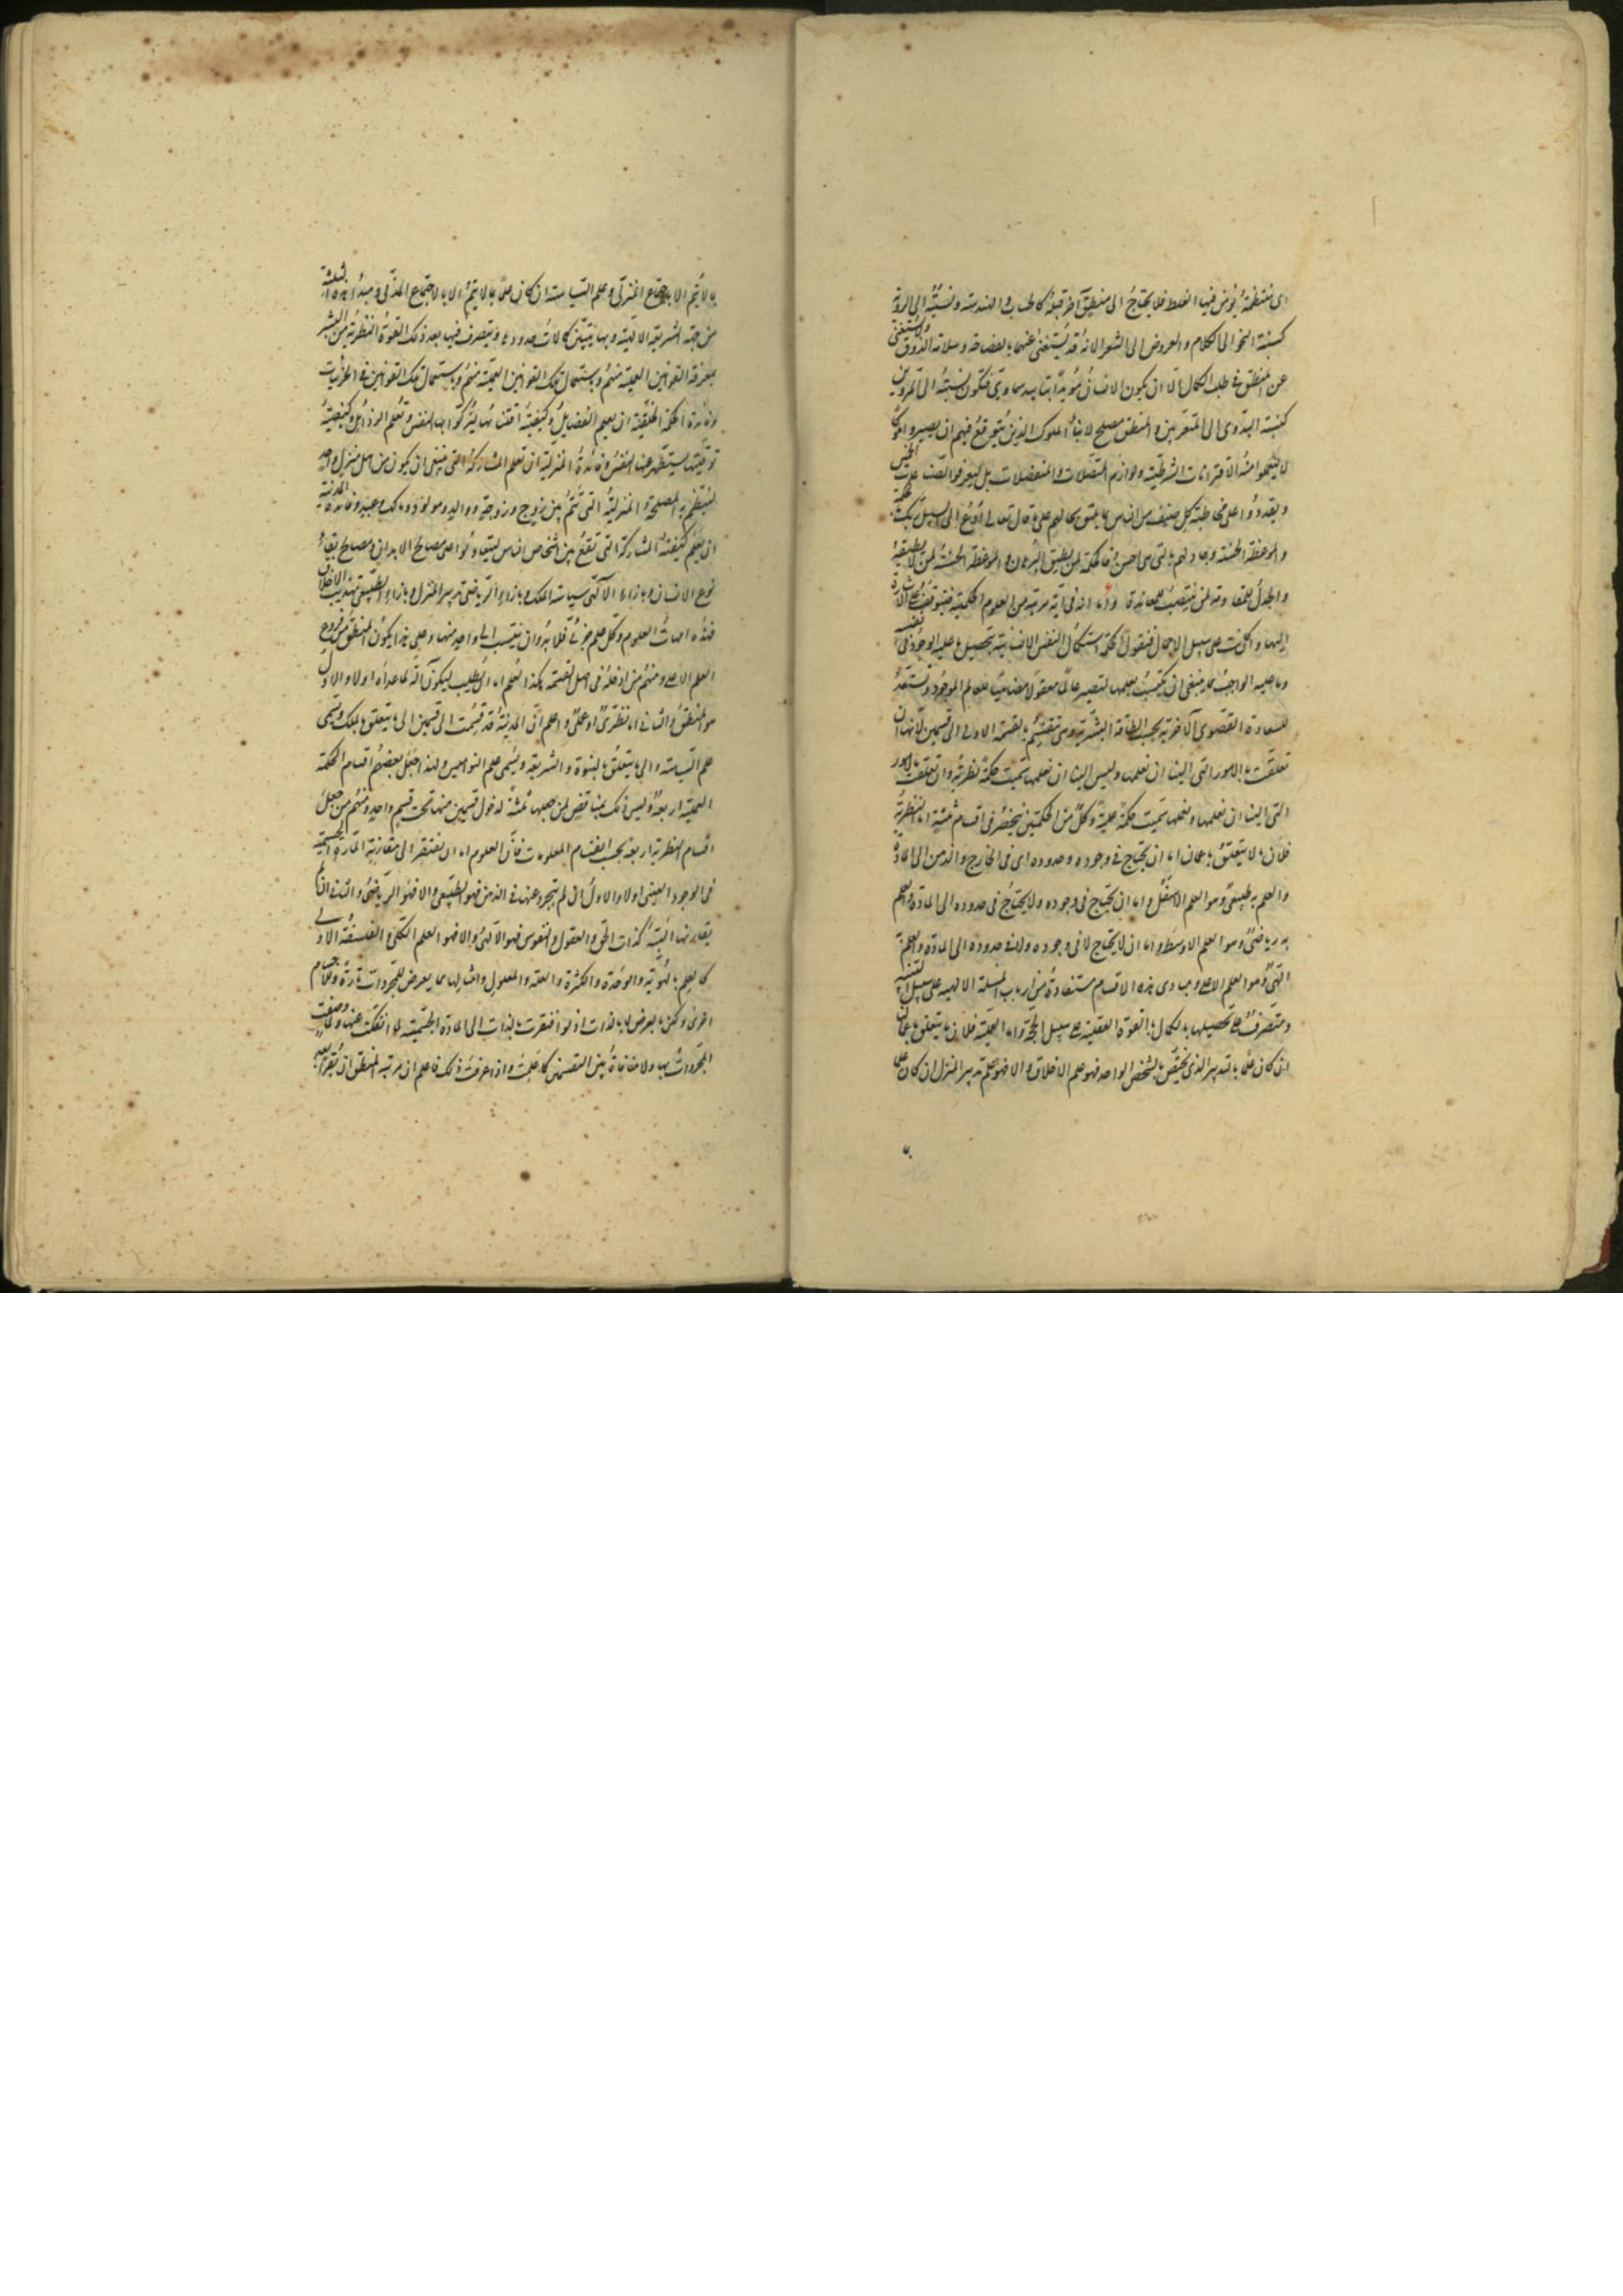 اى منتظمة يؤمن فيها الغلط فلا يحتاج الى منطق آخر قبله كالحساب والهندسة ونسبته الى الروية
كنسبة النحو الى الكلام والعروض الى الشعر الا انه قد يستغنى عنهما بالفصاحة وسلامة الذوق ولا يستغنى
عن المنطق فى طلب الكمال الا ان يكون الانسان مؤيدا بتأييد سماوى فتكون نسبته الى المروين
كنسبة البدوى الى المتعربين والمنطق مصلح لابناء الملوك الذين يتوقع فيهم ان يصيروا ملوكا
لا ليعلموا منه الاقترانات الشرطية ولوازم المتصلات والمنفصلات بل ليعرفوا الصناعات الخمس
ويقدروا على مخاطبة كل صنف من الناس بما يليق بحالهم على ما قال تعالى ادع الى سبيل ربك بالحكمة
والموعظة الحسنة وجادلهم بالتى هى احسن فالحكمة لمن يطيق البرهان والموعظة الحسنة لمن لا يطيقه
والجدل للمقاومة لمن ينتصب للمعاندة واما انه فى اية مرتبة من العلوم الحكمية فيتوقف على الاشارة
اليها وان كانت على سبيل الاجمال فنقول الحكمة استكمال النفس الانسانية بتحصيل ما عليه الوجود فى نفسه
وما عليه الواجب مما ينبغى ان يكتسب بعلمها لتصير عالما معقولا مضاهيا للعالم الموجود وتستعد
للسعادة القصوى الآخرية بحسب الطاقة البشرية وهى تنقسم بالقسمة الاولى الى قسمين لانها ان
تعلقت بالامور التى الينا ان نعلمها وليس الينا ان نعملها سميت حكمة نظرية وان تعلقت بالامور
التى الينا ان نعلمها ونعملها سميت حكمة عملية وكل من الحكمتين ينحصر فى اقسام ثلثة اما النظرية
فلان ما لا يتعلق باعمالنا اما ان يحتاج فى وجوده وحدوده اى فى الخارج والذهن الى المادة
والعلم به طبيعى وهو العلم الاسفل واما ان يحتاج فى وجوده ولا يحتاج فى حدوده الى المادة والعلم
به رياضى وهو العلم الاوسط واما ان لا يحتاج لا فى وجوده ولا فى حدوده الى المادة والعلم به
الهى وهو العلم الاعلى ومبادى هذه الاقسام مستفادة من ارباب الملة الالهية على سبيل التنبيه
ومتصرف على تحصيلها بالكمال بالقوة العقلية على سبيل الحجة واما العملية فلان ما يتعلق باعمالنا
ان كان علما بالتدبير الذى يختص بالشخص الواحد فهو علم الاخلاق والا فهو علم تدبير المنزل ان كان علما
بما
بما لا يتم الا بالاجتماع المنزلى وعلم السياسة ان كان علما بما لا يتم الا بالاجتماع المدنى ومبدء هذه الثلثة
من جهة الشريعة الالهية وبها يتبين كمالات حدودها ويتصرف فيها بعد ذلك القوة النظرية من البشر
بمعرفة القوانين العملية منهم وباستعمال تلك القوانين العملية منهم وباستعمال تلك القوانين فى الجزئيات
وفائدة الحكمة الخلقية ان يعلم الفضايل وكيفية اقتنائها لتزكو بها النفس وتعلم الرذائل وكيفية
توقيها ليتطهر عنها النفس وفائدة المنزلية ان تعلم المشاركة التى ينبغى ان يكون من اهل منزل واحد
لينتظم به المصلحة المنزلية التى تتم بين زوج وزوجة ووالد ومولود ومالك وعبد وفائدة المدنية
ان يعلم كيفية المشاركة التى تقع بين اشخاص الناس ليتعاونوا على مصالح الابدان ومصالح بقاء
نوع الانسان وبازاء الآلهى سياسة الملك وبازاء الرياضى تدبير المنزل وبازاء الطبيعى تهذيب الاخلاق
فهذه امهات العلوم وكل علم جزئى فلا بد وان ينتسب الى واحد منها وعلى هذا يكون المنطق من فروع
العلم الاعلى ومنهم من ادخله فى اصل القسمة هكذا العلم اما ان يطلب ليكون آلة لما عداه اولا والاول
هو المنطق والثانى اما نظرى او عملى واعلم ان المدنية قد قسمت الى قسمين الى ما يتعلق بالملك ويسمى
علم السياسة والى ما يتعلق بالنبوة والشريعة ويسمى علم النواميس ولهذا جعل بعضهم اقسام الحكمة
العملية اربعة وليس ذلك بمناقض لمن جعلها ثلثة لدخول قسمين منها تحت قسم واحد ومنهم من جعل
اقسام النظرية اربعة بحسب انقسام المعلومات فان العلوم اما ان تفتقر الى مقارنة المادة الجسمية
فى الوجود العينى اولا والاول ان لم يتجرد عنها فى الذهن فهو الطبيعى والا فهو الرياضى والثانى ان لم
يقارنها البتة كذات الحق والعقول والنفوس فهو الآلهى والا فهو العلم الكلى والفلسفة الاولى
كالعلم بالهوية والوحدة والكثرة والعلة والمعلول وامثالها مما يعرض للمجردات تارة وللاجسام
اخرى ولكن بالعرض لا بالذات اذ لو افتقرت بالذات الى المادة الجسمية لما انفكت عنها ولما وصفت
المجردات بها ولا منافاة بين القسمين كما علمت واذا عرفت ذلك فاعلم ان مرتبة المنطق ان يقرأ بعد